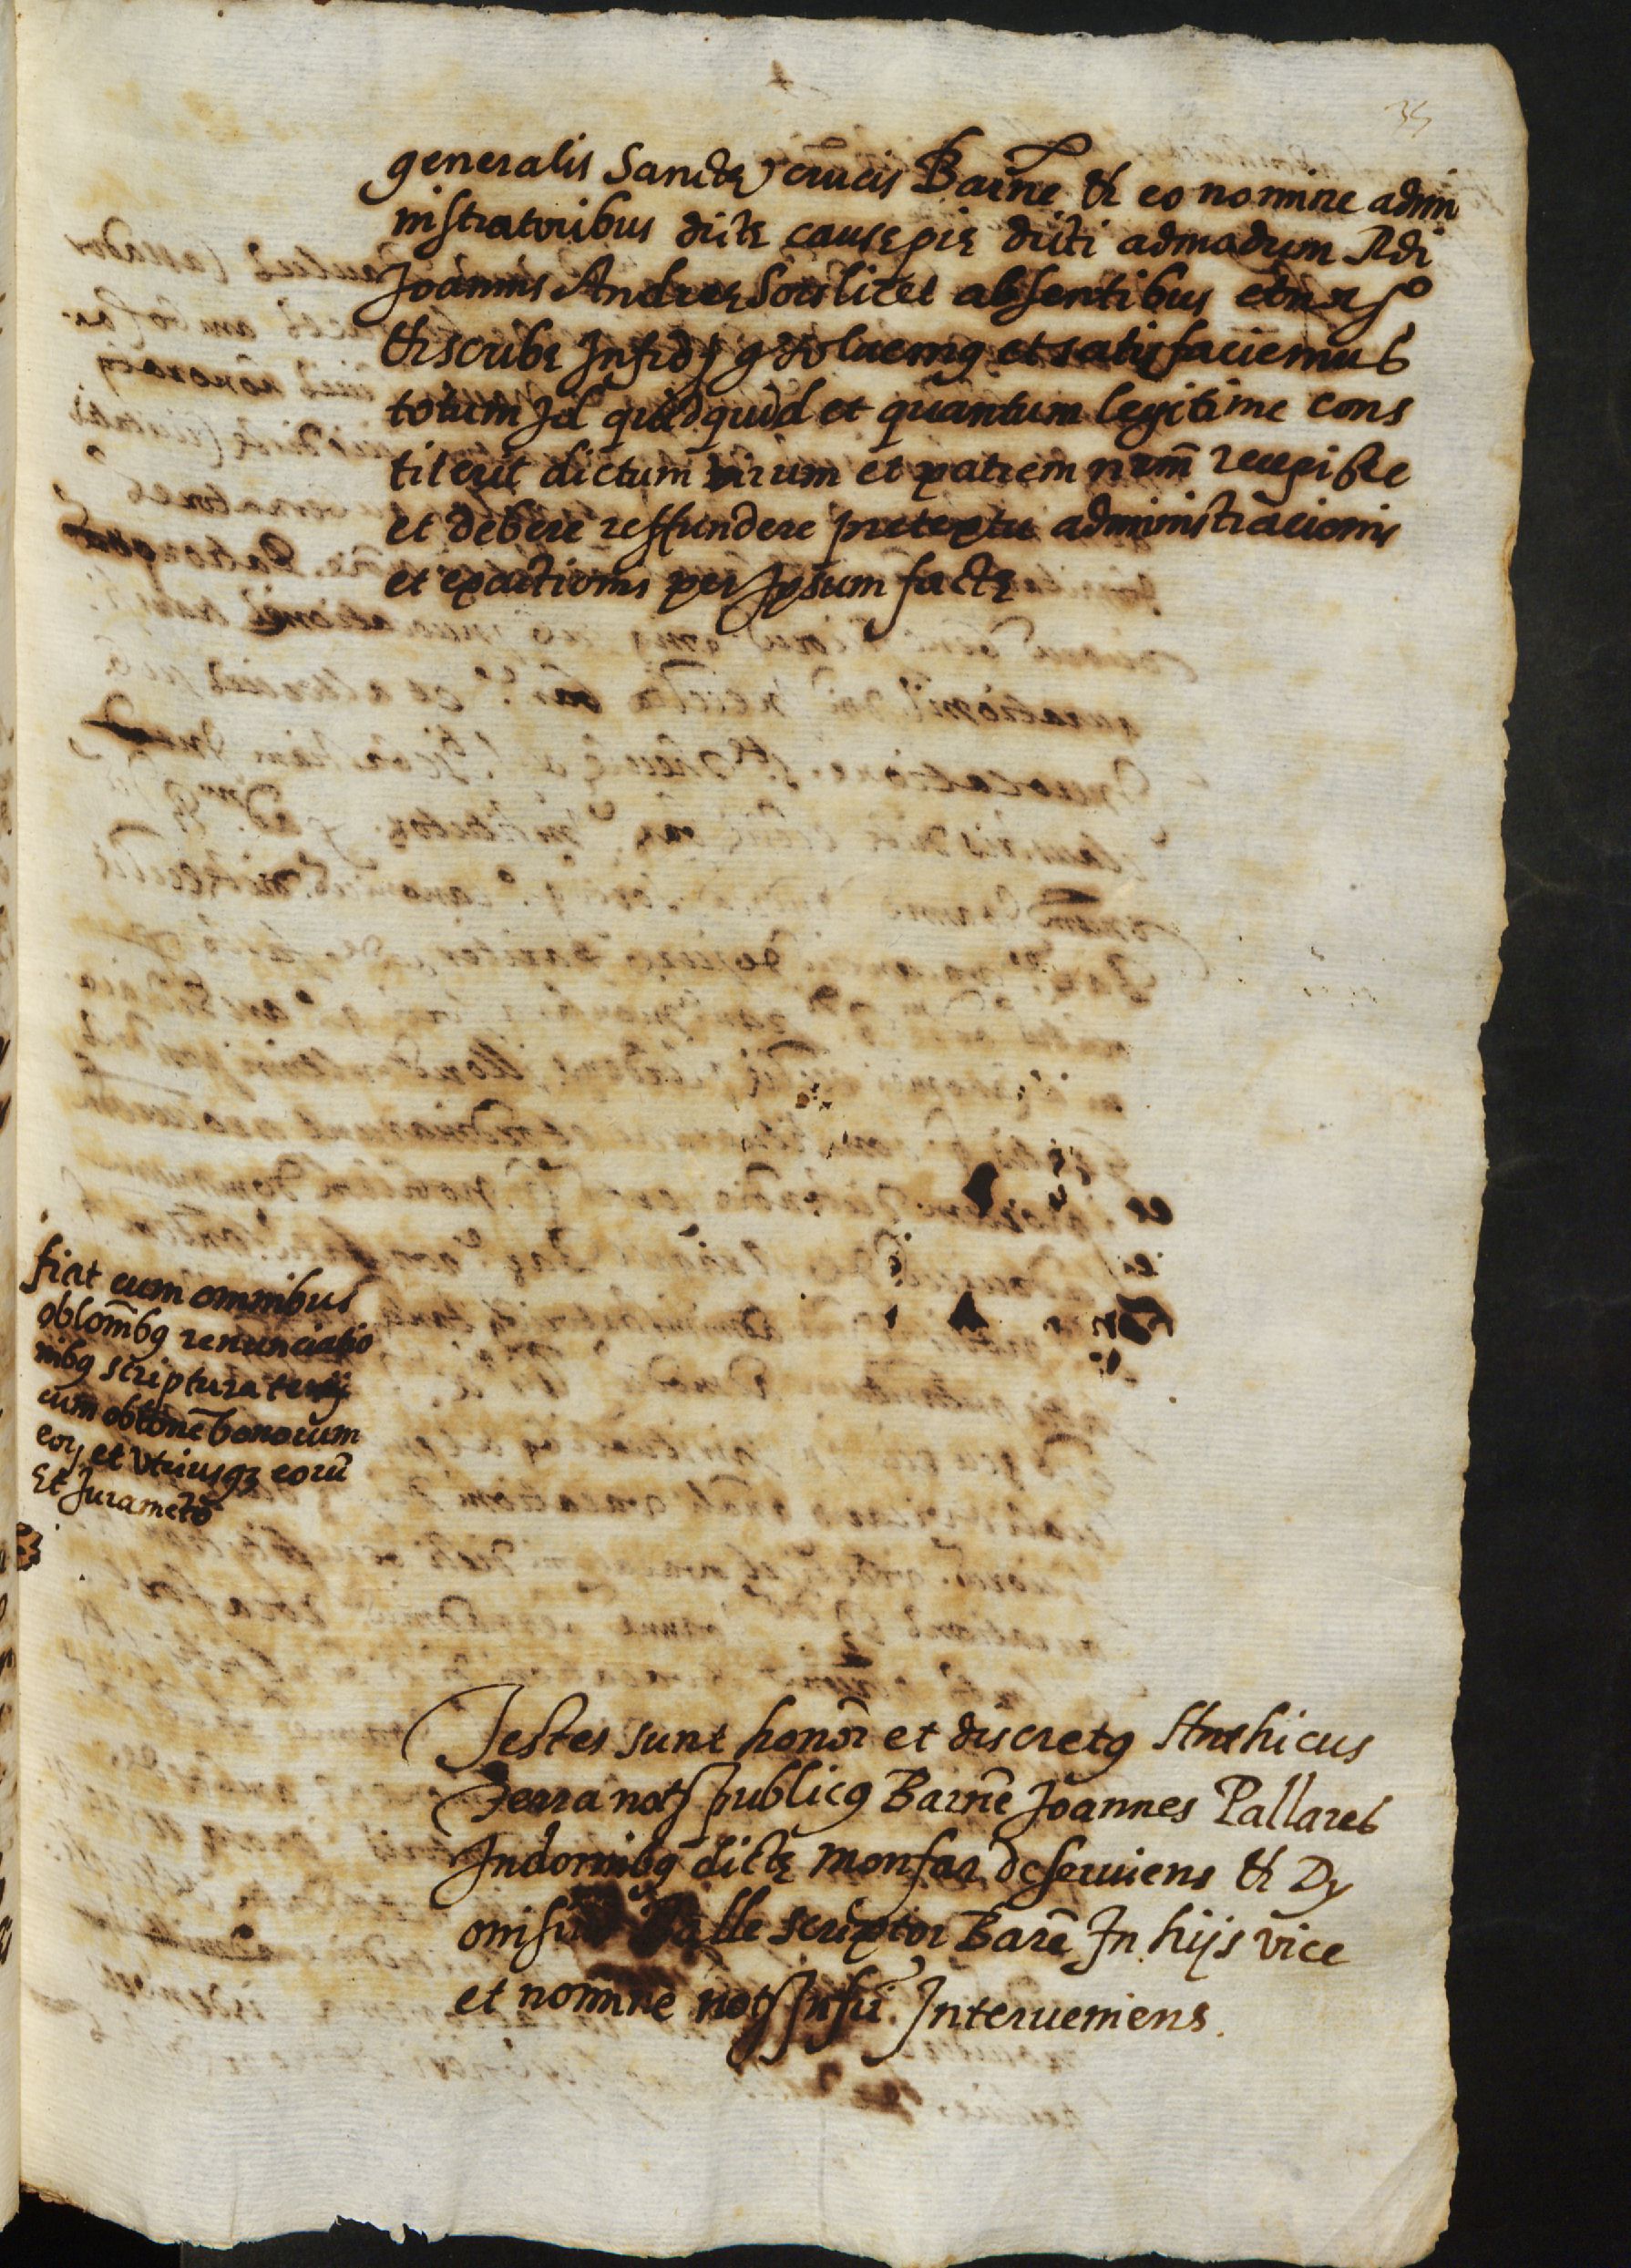 35
generalis Sanctę crucis Barne & eo nomine admi
nistratoribus dictę causę pię dicti admodum Rdi
Joannis Andreę Sors licet absentibus
& scribę Infro soluemus et satisfaciemus
totum Id quidquid et quantum legitime cons
titerit dictum virum et patrem nrm recepisse
et debere reffundere pretextu administracionis
et exactionis per Ipsum factę
fiat cum omnibus
oblonibus renunciatio
nibus scriptura tertij
cum oblone bonorum
eorum et vtriusque eorū
Et Juramēto
Testes sunt honor et discretus
Ferra nots publicus Barne Joannes Pallares
In domibus dictę Monfar deseruiens & Dy
onisius Valle scriptor Bare In hijs vice
et nomine nots Infri Interueniens.